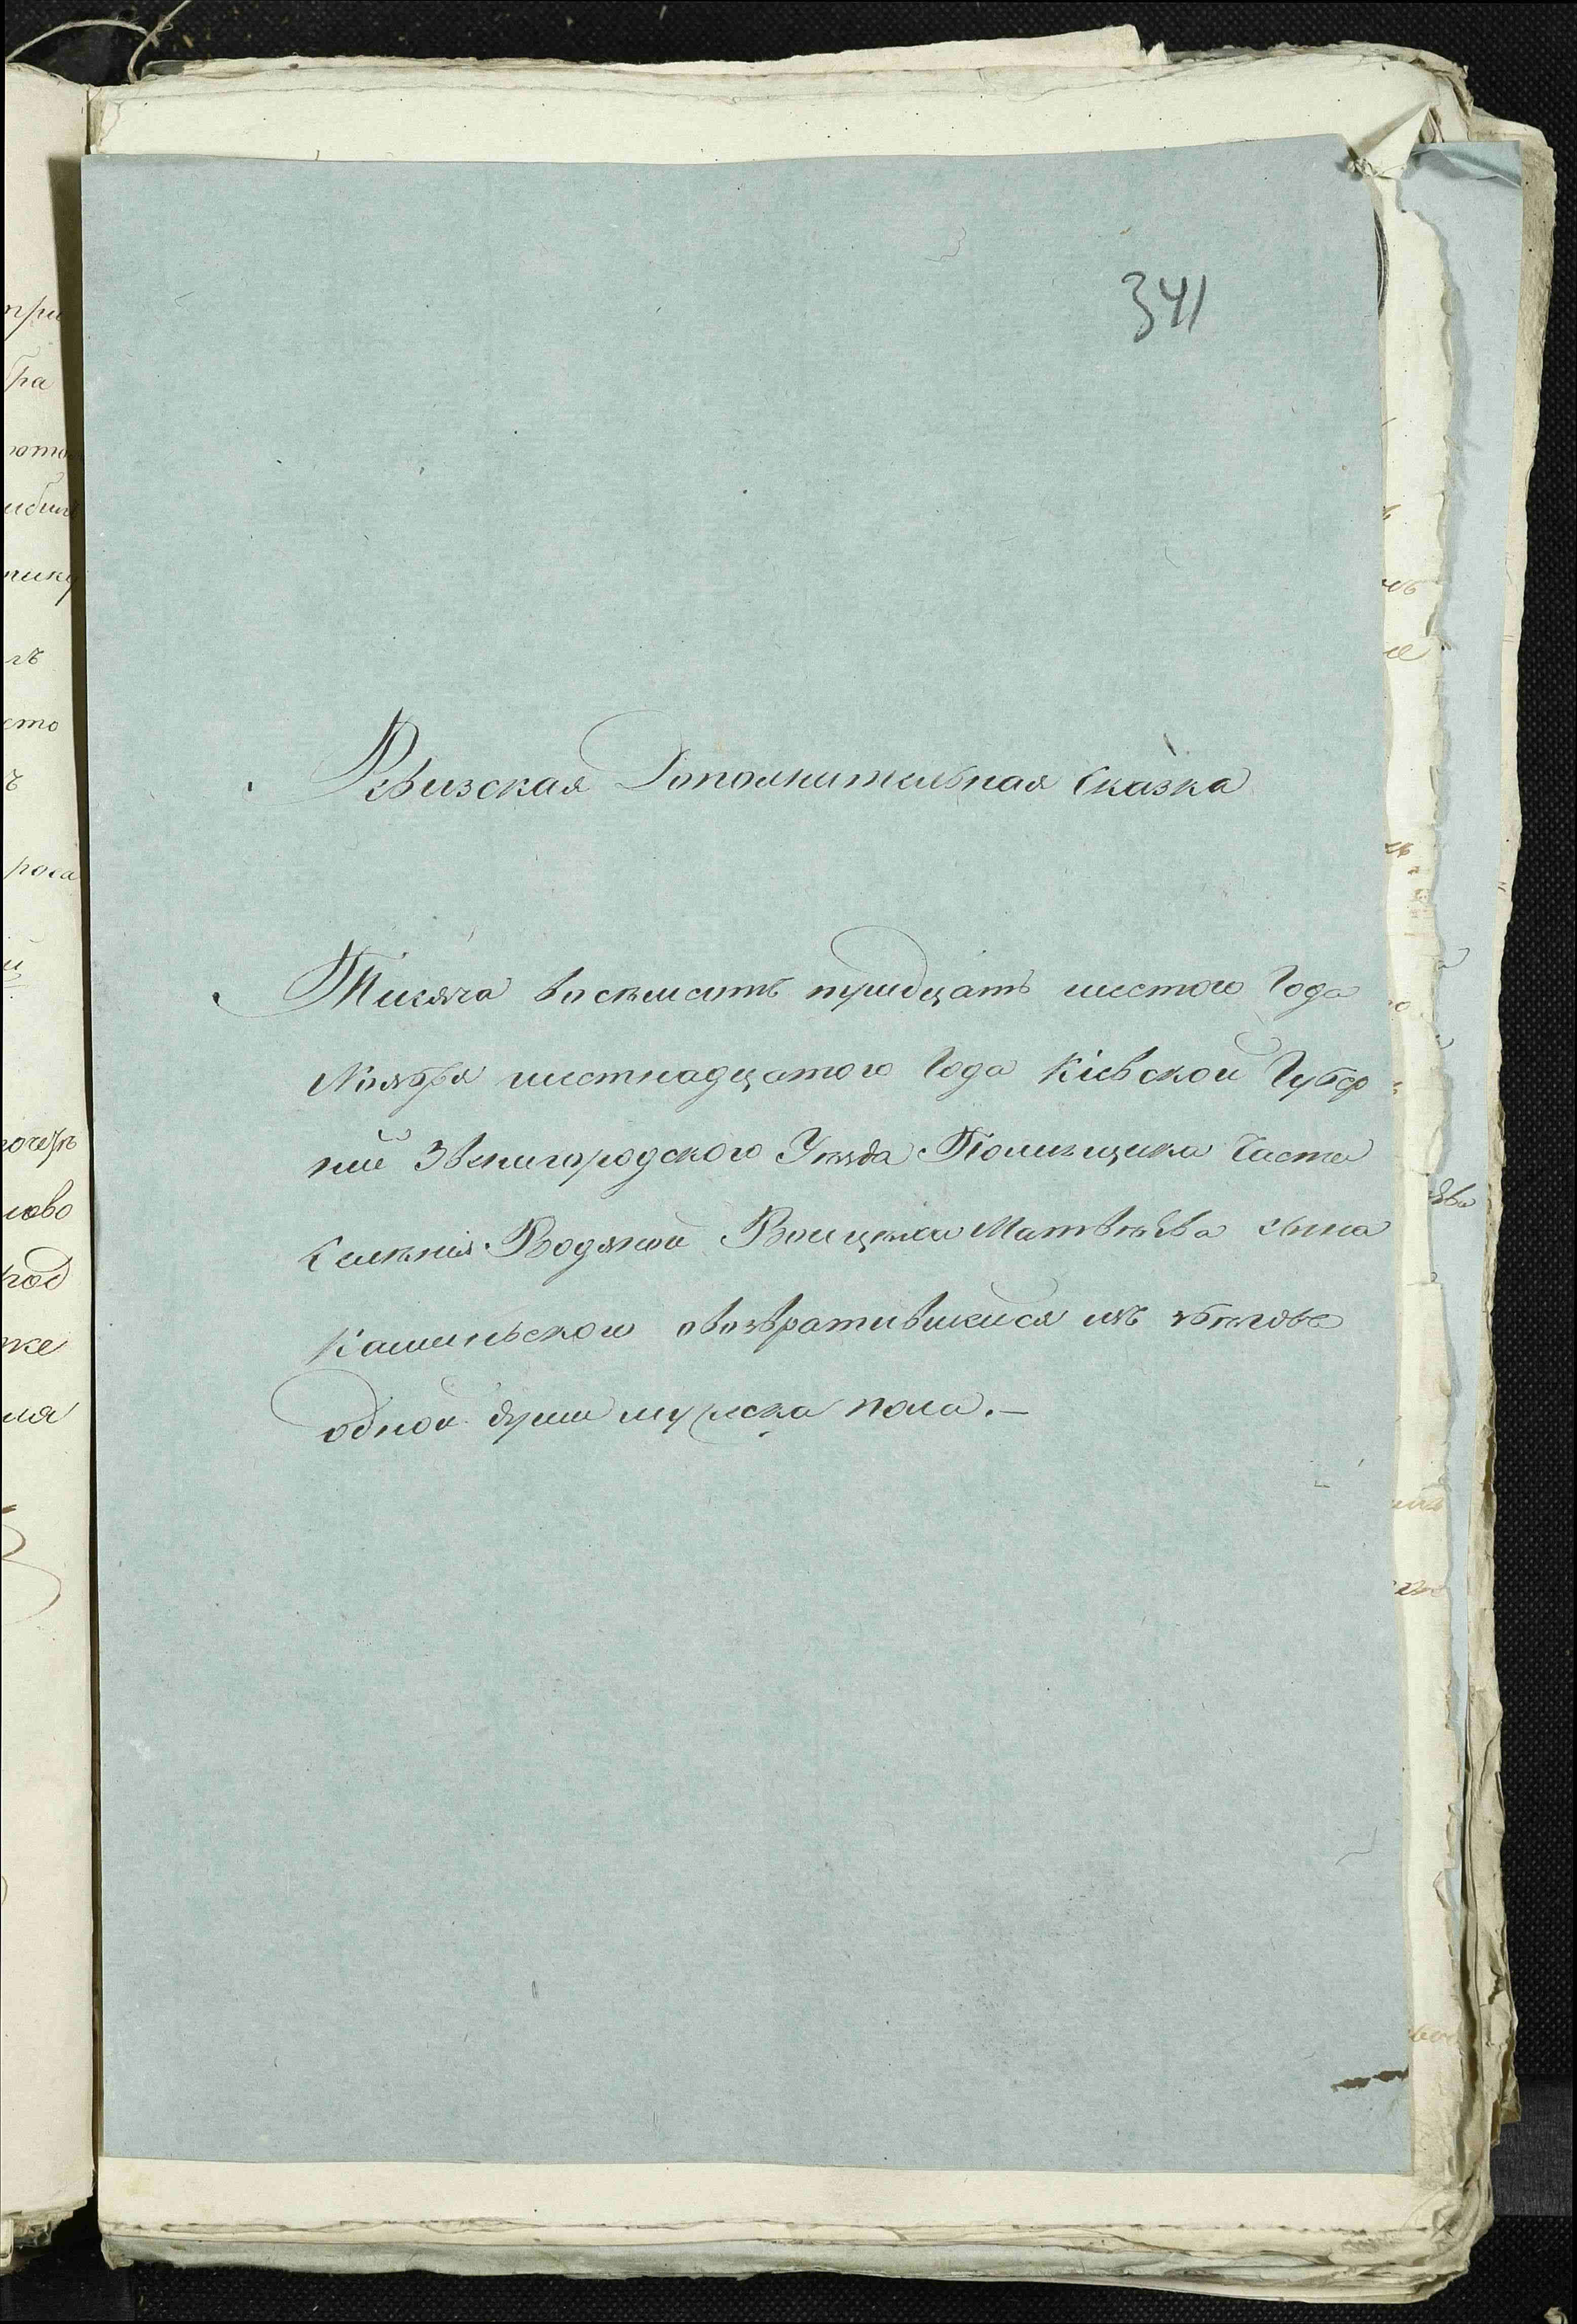 341
Ревизская Дополнительная Сказка
Тисяча восемсотъ тридцать шестого Года
Ноября шестнадцатого Года Кіевской Губер
ніи Звенигородского Уезда Помещика Части
Селенія Водяной Войцеха Матвѣева сына
овозвратившемся изъ
одной души мужеска пола.—